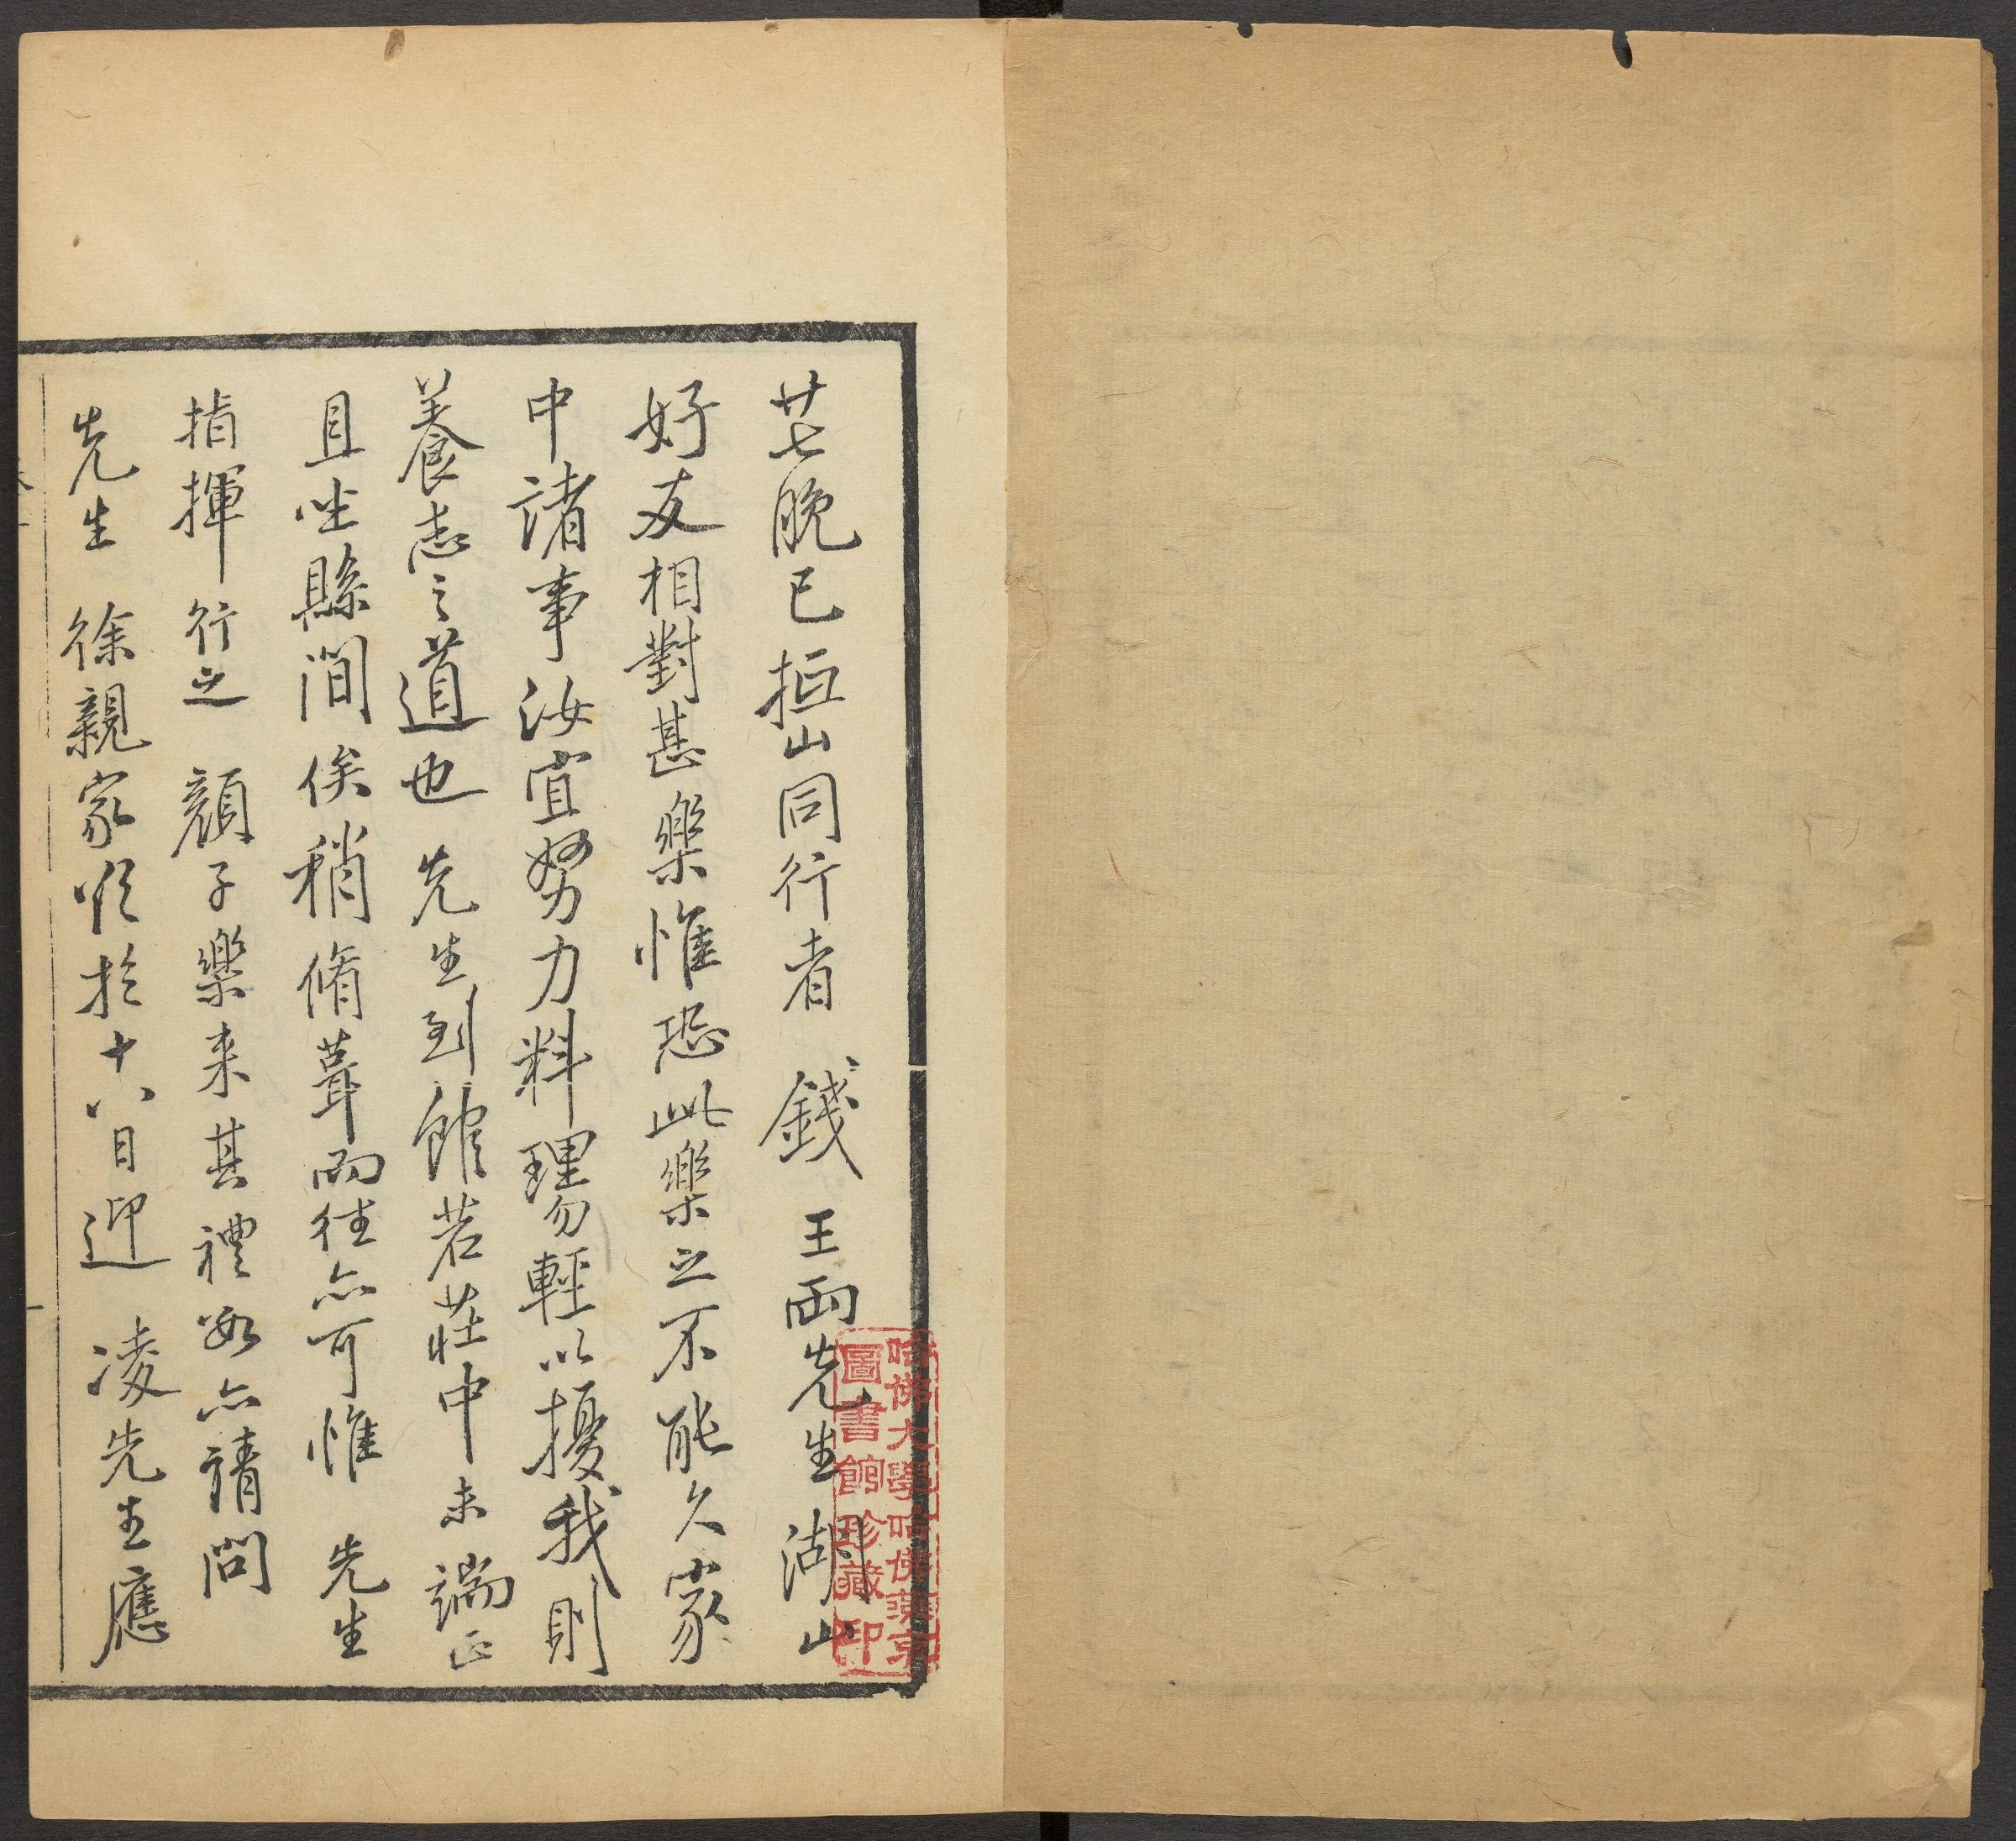 廿七晚已抵山同行者 錢 王兩先生湖山
好友相對甚樂惟恐此樂之不能久家
中諸事汝宜努力料理勿輕以擾我則
養志之道也 先生到館若莊中未端正
且坐縣間俟稍脩葺而往亦可惟 先生
指揮行之 顏子樂來其禮數亦請問
先生 徐親家於十八日迎 凌先生應
哈佛大學哈佛燕京
圖書館珍藏印